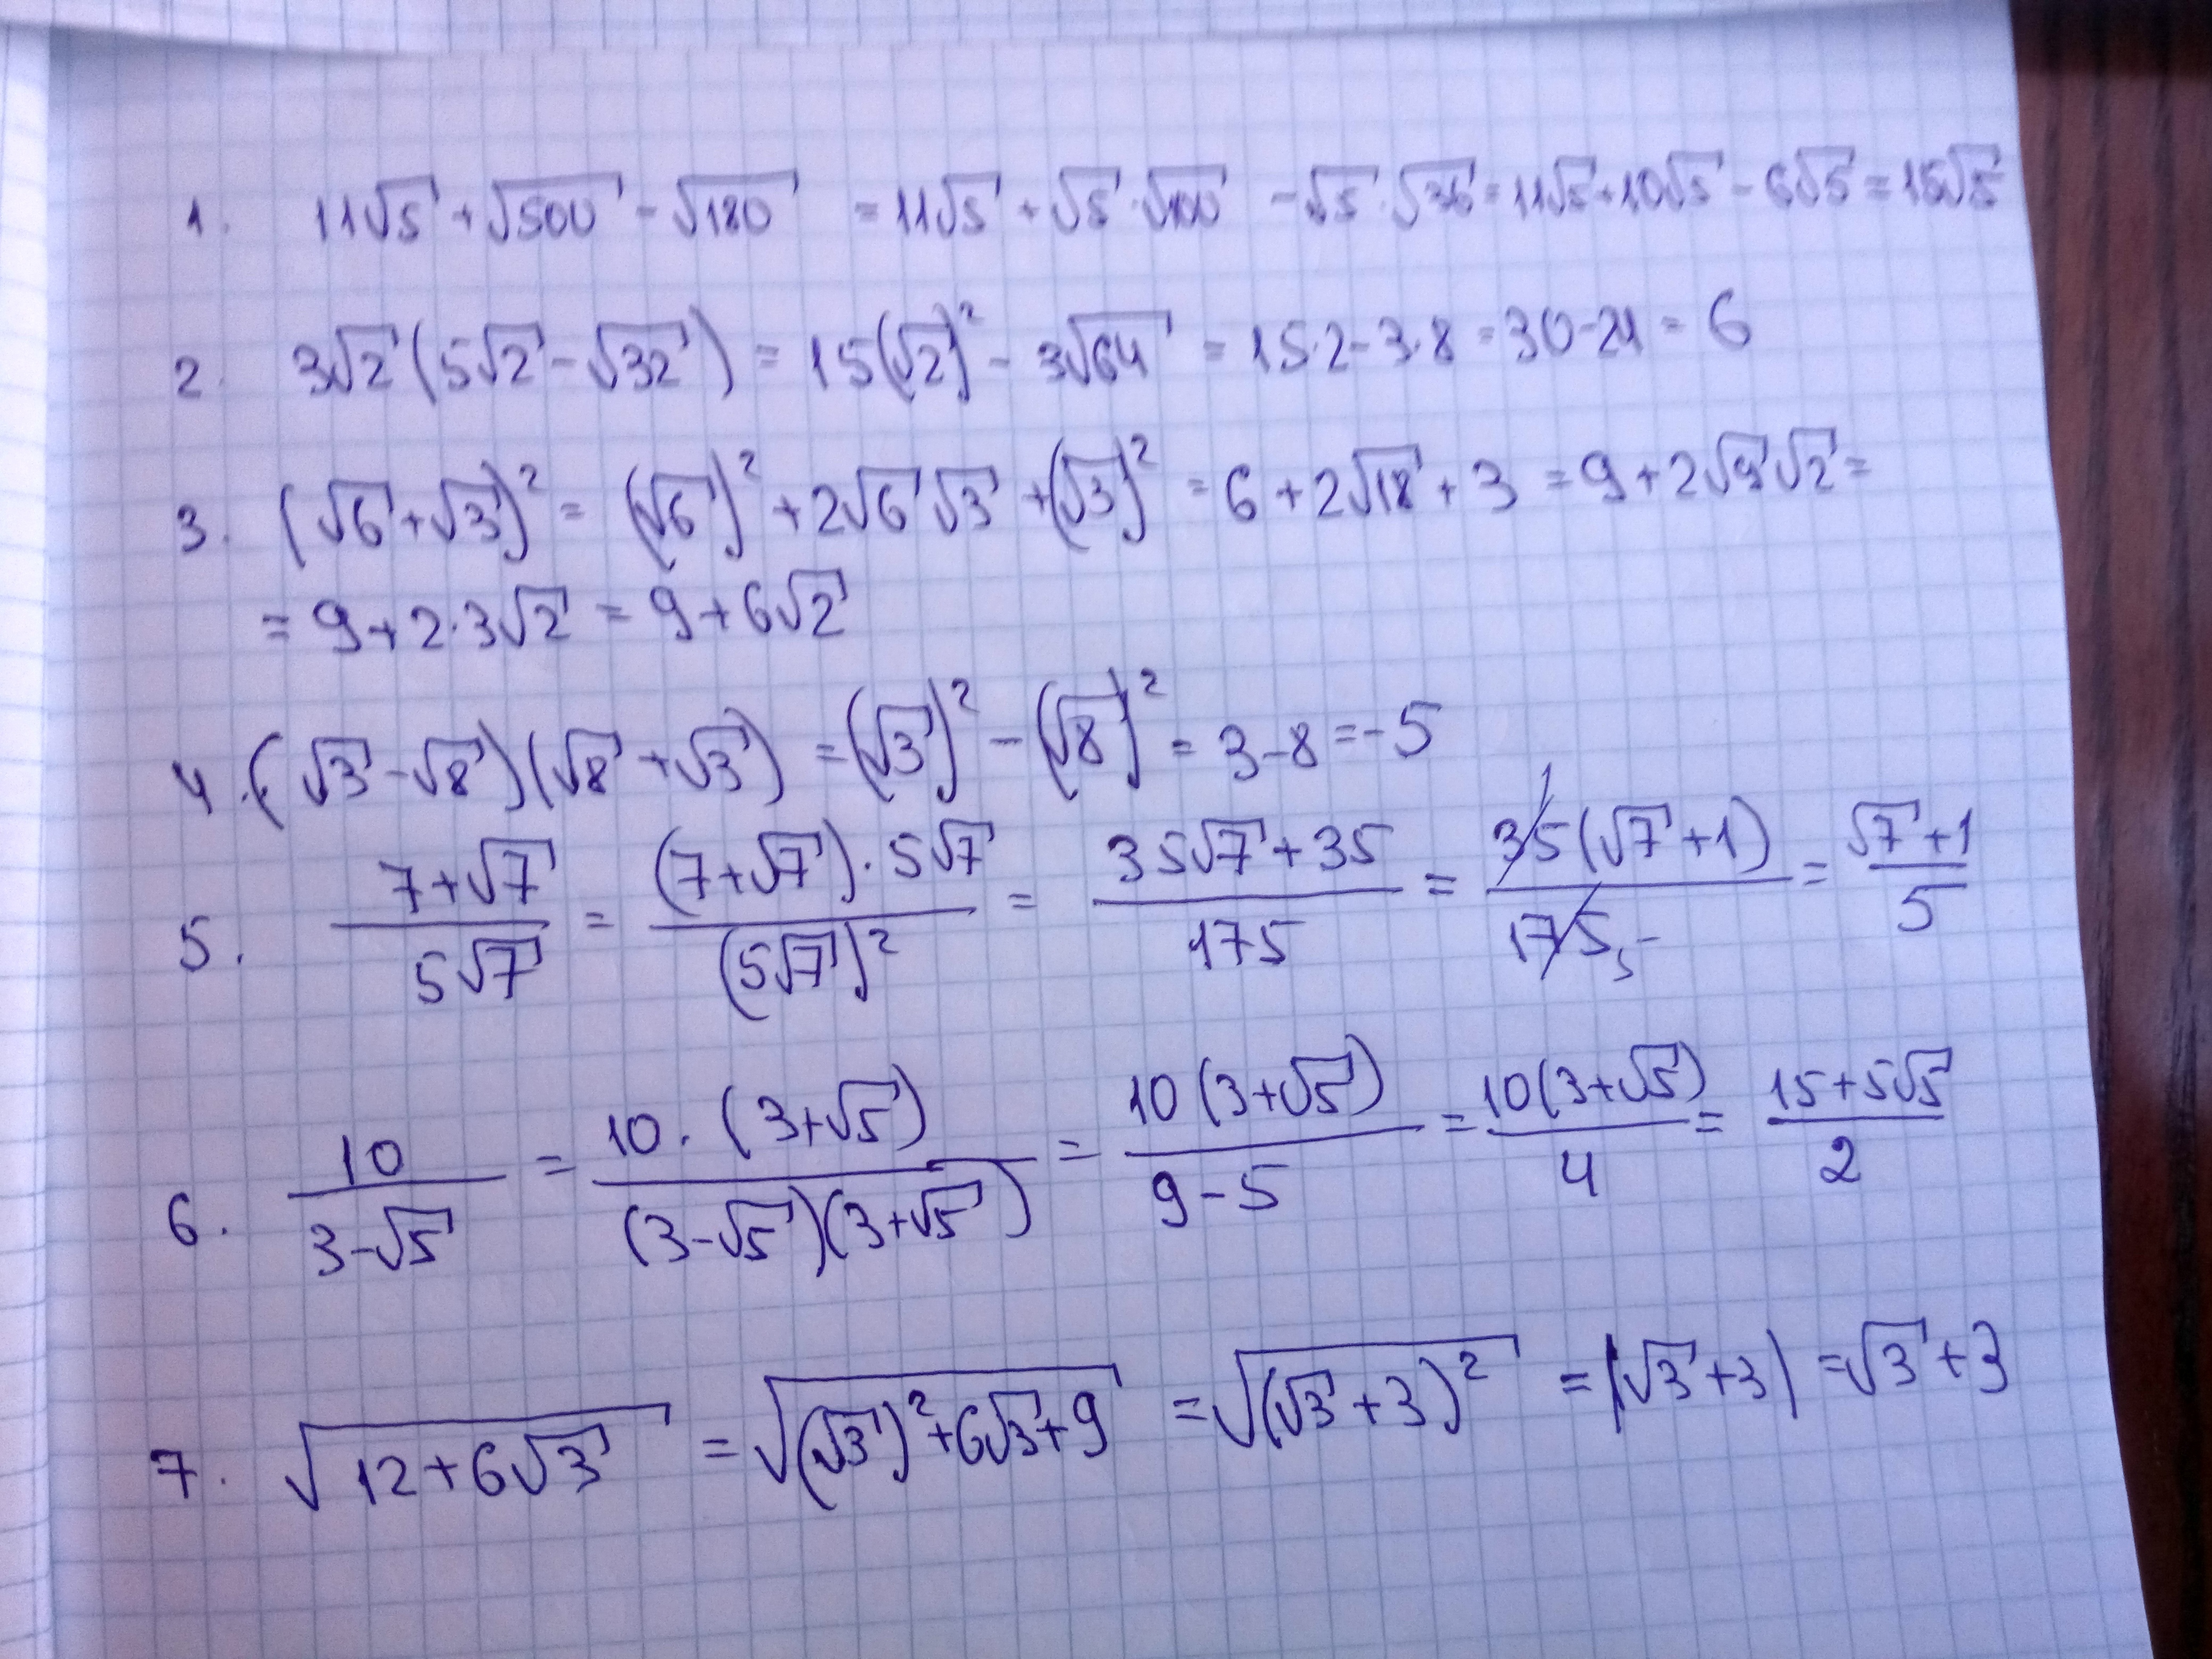 1. 11√5 + √500 - √180 = 11√5 + √5 · √100 - √5 · √36 = 11√5 + 10√5 - 6√5 = 15√5
2. 3√2 (5√2 - √32) = 15(√2)² - 3√64 = 15·2 - 3·8 = 30 - 24 = 6
3. (√6 + √3)² = (√6)² + 2√6 √3 + (√3)² = 6 + 2√18 + 3 = 9 + 2√9 √2 =
= 9 + 2·3√2 = 9 + 6√2
4. (√3 - √8)(√8 + √3) = (√3)² - (√8)² = 3 - 8 = -5
5. (7+√7)/(5√7) = ((7+√7)·5√7)/(5√7)² = (35√7 + 35)/175 = 35(√7 + 1)/175 = (√7 + 1)/5
6. 10/(3-√5) = 10·(3+√5)/((3-√5)(3+√5)) = 10(3+√5)/(9-5) = 10(3+√5)/4 = (15+5√5)/2
7. √(12+6√3) = √((√3)²+6√3+9) = √((√3+3)²) = |√3+3| = √3+3